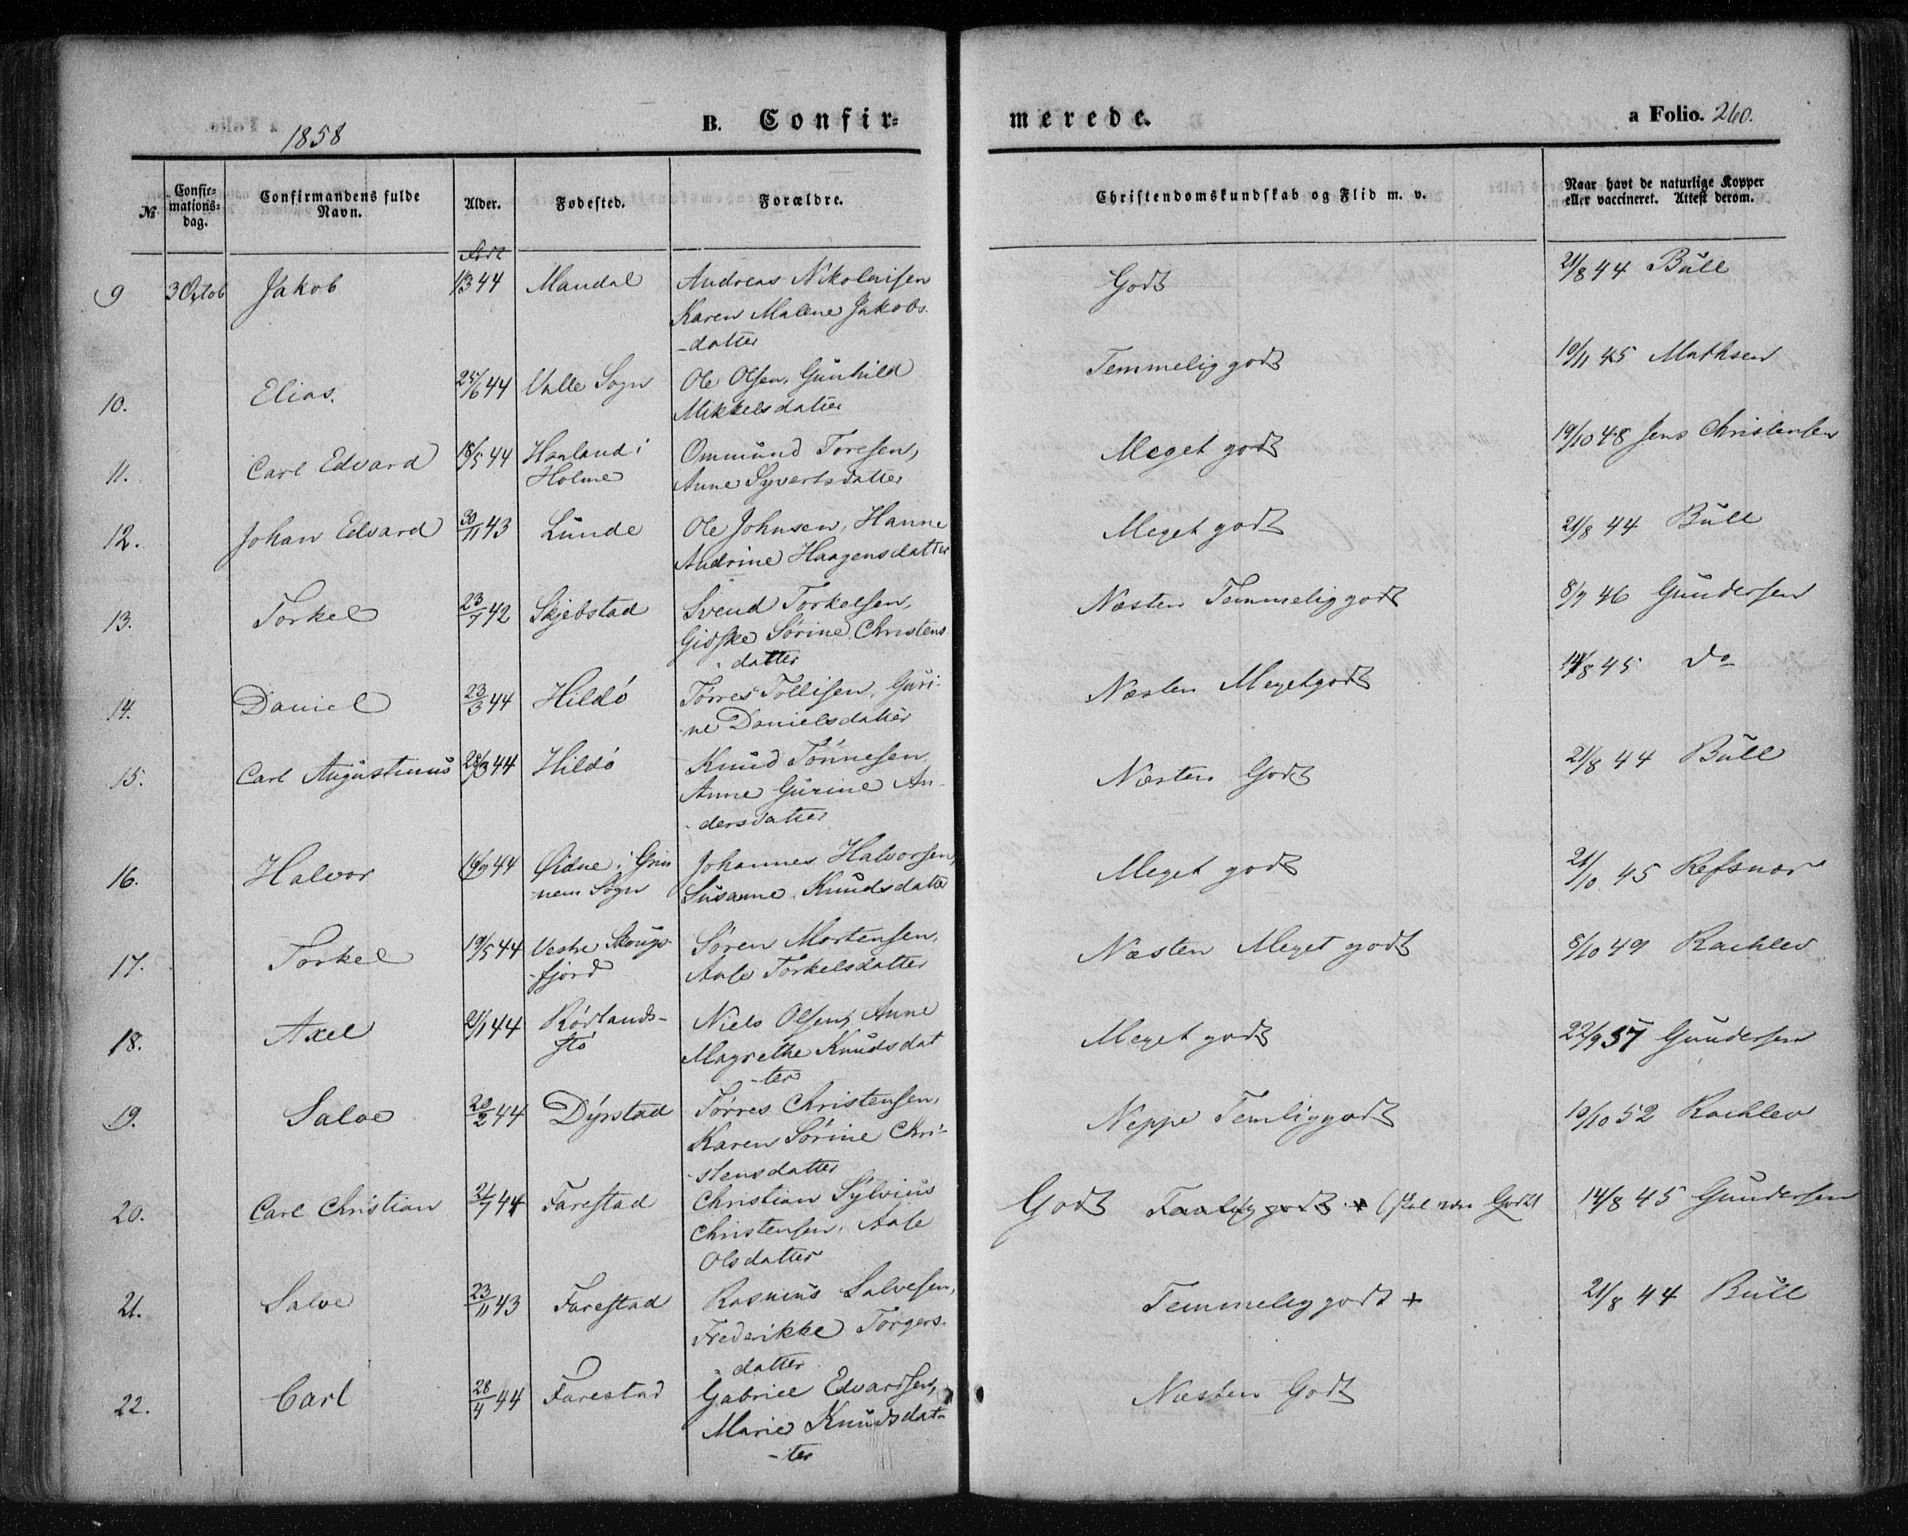 1858
B. Confir-
merede.
a Folio. 260.
No
Confir-
mations-
dag.
Confirmandens fulde
Navn.
Alder.
Fødested.
Forældre.
Christendomskundskab og Flid m. v.
Naar havt de naturlige Kopper
eller vaccineret. Attest derom.
9 3 Octob Jakob 44 Mandal Andreas Nikolaisen Godt 21/8 44 Bull
Karen Malene Jakobs-
-datter
10. Elias. 25/6 44 Valle Sogn Ole Olsen, Gunhild Temmelig godt 10/11 45 Mathsen
Mikkelsdatter
11. Carl Edvard 18/5 44 Haaland i Ommund Toresen, Meget godt 19/10 48 Jens Christensen
Holme Anne Syvertsdatter
12. Johan Edvard 30/11 43 Lunde Ole Johnsen, Hanne Meget godt 21/8 44 Bull
Andrine Haagensdatter
13. Torkel 23/7 42 Skjebstad Svend Torkelsen, Næsten Temmelig godt 8/7 46 Gundersen
Gidske Sørine Christens
-datter
14. Daniel 23/3 44 Hildø Tørres Tollisen, Guri- Næsten Meget godt 14/8 45 do
-ne Danielsdatter
15. Carl Augustinus 28/3 44 Hildø Knud Tønnesen Næsten Godt 21/8 44 Bull
Anne Gurine An-
-dersdatter
16. Halvor 16/9 44 Øidne i Grin Johannes Halvorsen, Meget godt 21/10 45 Refsnæs
nem Sogn Susanne Knudsdatter
17. Torkel 19/5 44 Vestre Skougs- Søren Mortensen, Næsten Meget godt 8/10 49 Rachlev
-fjord Aase Torkelsdatter
18. Axel 21/1 44 Rødlands- Niels Olsen, Anne Meget godt 22/9 57 Gundersen
stø Magrethe Knudsdat
-ter
19. Salve 20/2 44 Dyrstad Tørres Christensen, Neppe Temlig godt 10/10 52 Rachlev
Karen Sørine Chri-
-stensdatter
20. Carl Christian 21/7 44 Farestad Christian Sylvius Godt Taalig godt + (skal være Godt) 14/8 45 Gundersen
Christensen, Aase
Olsdatter
21. Salve 23/11 43 Farestad Rasmus Salvesen, Temmelig godt + 21/8 44 Bull
Frederikke Torgers-
datter
22. Carl 28/4 44 Farestad Gabriel Edvardsen, Næsten Godt
Marie Knudsdat-
-ter